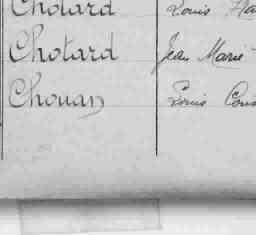 Chotard Louis
Chotard Jean Marie
Chouan Louis